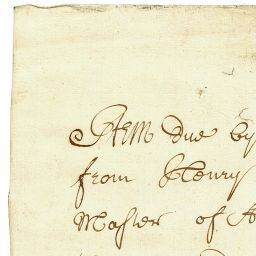 Item due by
from Henry
Master of